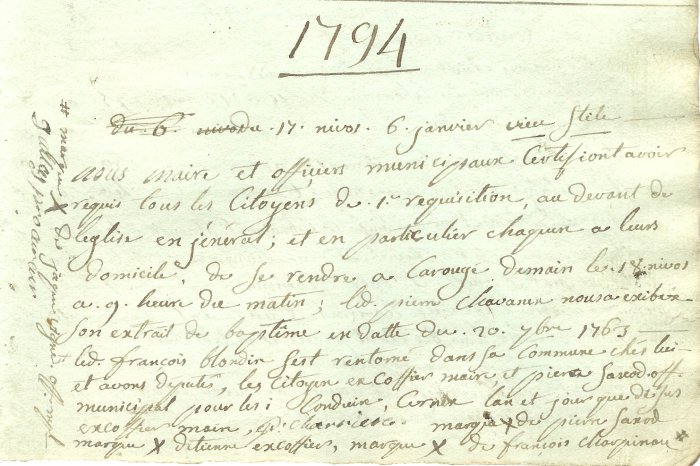 1794
du 6 nivos du 17. nivos. 6 janvier vieu Stile
nous maire et officiers municipaux Certifiont avoir
requis tous les Citoyens de 1.e requisition, au devant de
leglise en jénéral; et en particulier chaqun a leurs
domicile, de se rendre a Carouge demain le 18 nivos
a 9. heure du matin; led. pierre Chavanux nous a exibéx
son extrait de baptême en datte du 20. 7bre 1763
led. françois blondin sest rentorné dans sa Commune ches lui
et avons députés, les Citoyen excoffier maire, et pierre Saxod off.
municipal pour les i Conduir, Cernex lan et jour que de sus
excoffier maire, marque X de pierre Saxod
marque X detienne excoffier, marque X de françois Charpinau #
# marque X de jaque off. mpl